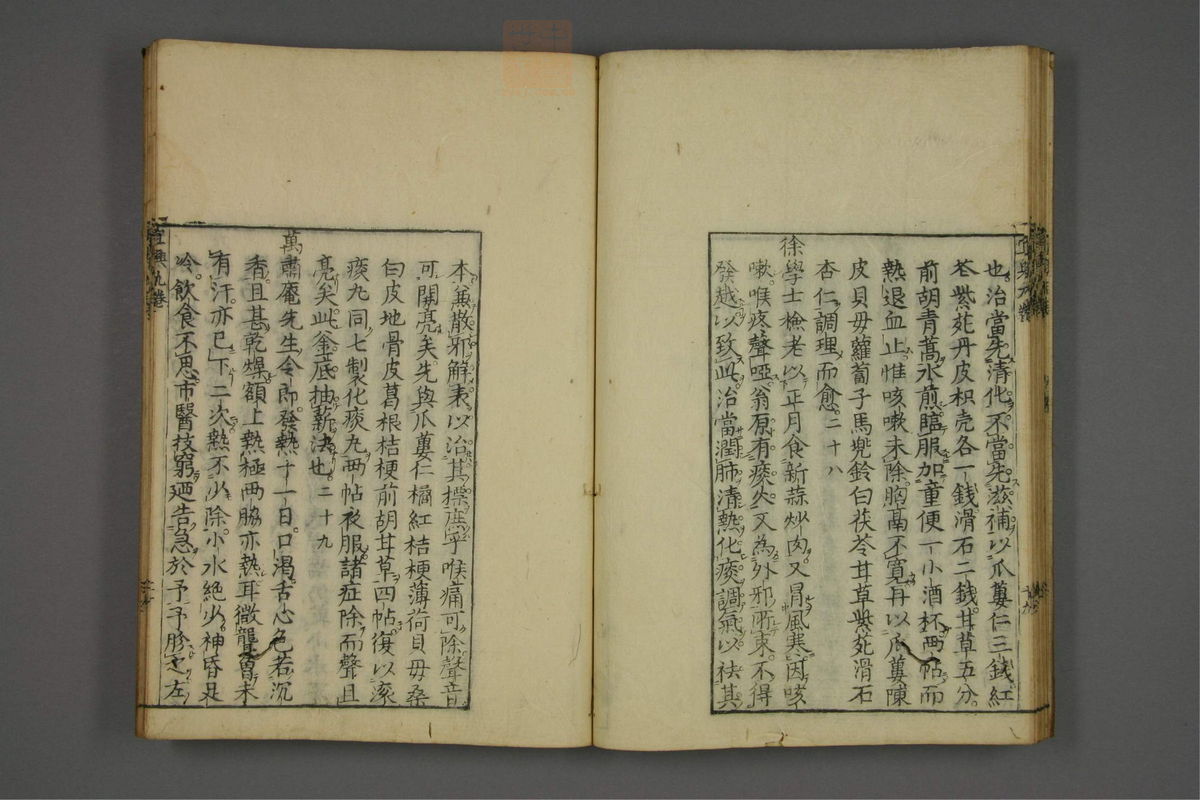 也治當先清化不當先滋補以瓜蔞仁三錢紅
花紫菀丹皮枳壳各一錢滑石二錢甘草五分
前胡青蒿水煎臨服加童便一小酒杯兩帖而
熱退血止惟咳嗽未除胸鬲不寬再以瓜蔞陳
皮貝母蘿蔔子馬兜鈴白茯苓甘草紫菀滑石
杏仁調理而愈二十八
徐學士檢老以正月食新蒜炒肉又冒風寒因咳
嗽喉疼聲啞翁原有痰火又為外邪所束不得
發越以致此治當潤肺清熱化痰調氣以祛其
本兼散邪解表以治其標庶乎喉痛可除聲音
可開亮矣先與瓜蔞仁橘紅桔梗薄荷貝母桑
白皮地骨皮葛根桔梗前胡甘草四帖復以滾
痰丸同七製化痰丸兩帖夜服諸症除而聲且
亮矣此釜底抽薪法也二十九
萬肅菴先生令郎發熱十一日口渴舌心色若沉
香且甚乾燥額上熱極兩脇亦熱耳微聾曾未
有汗亦已下二次熱不少除小水絶少神昏足
冷飲食不思市醫技窮廼告急於予予胗之左